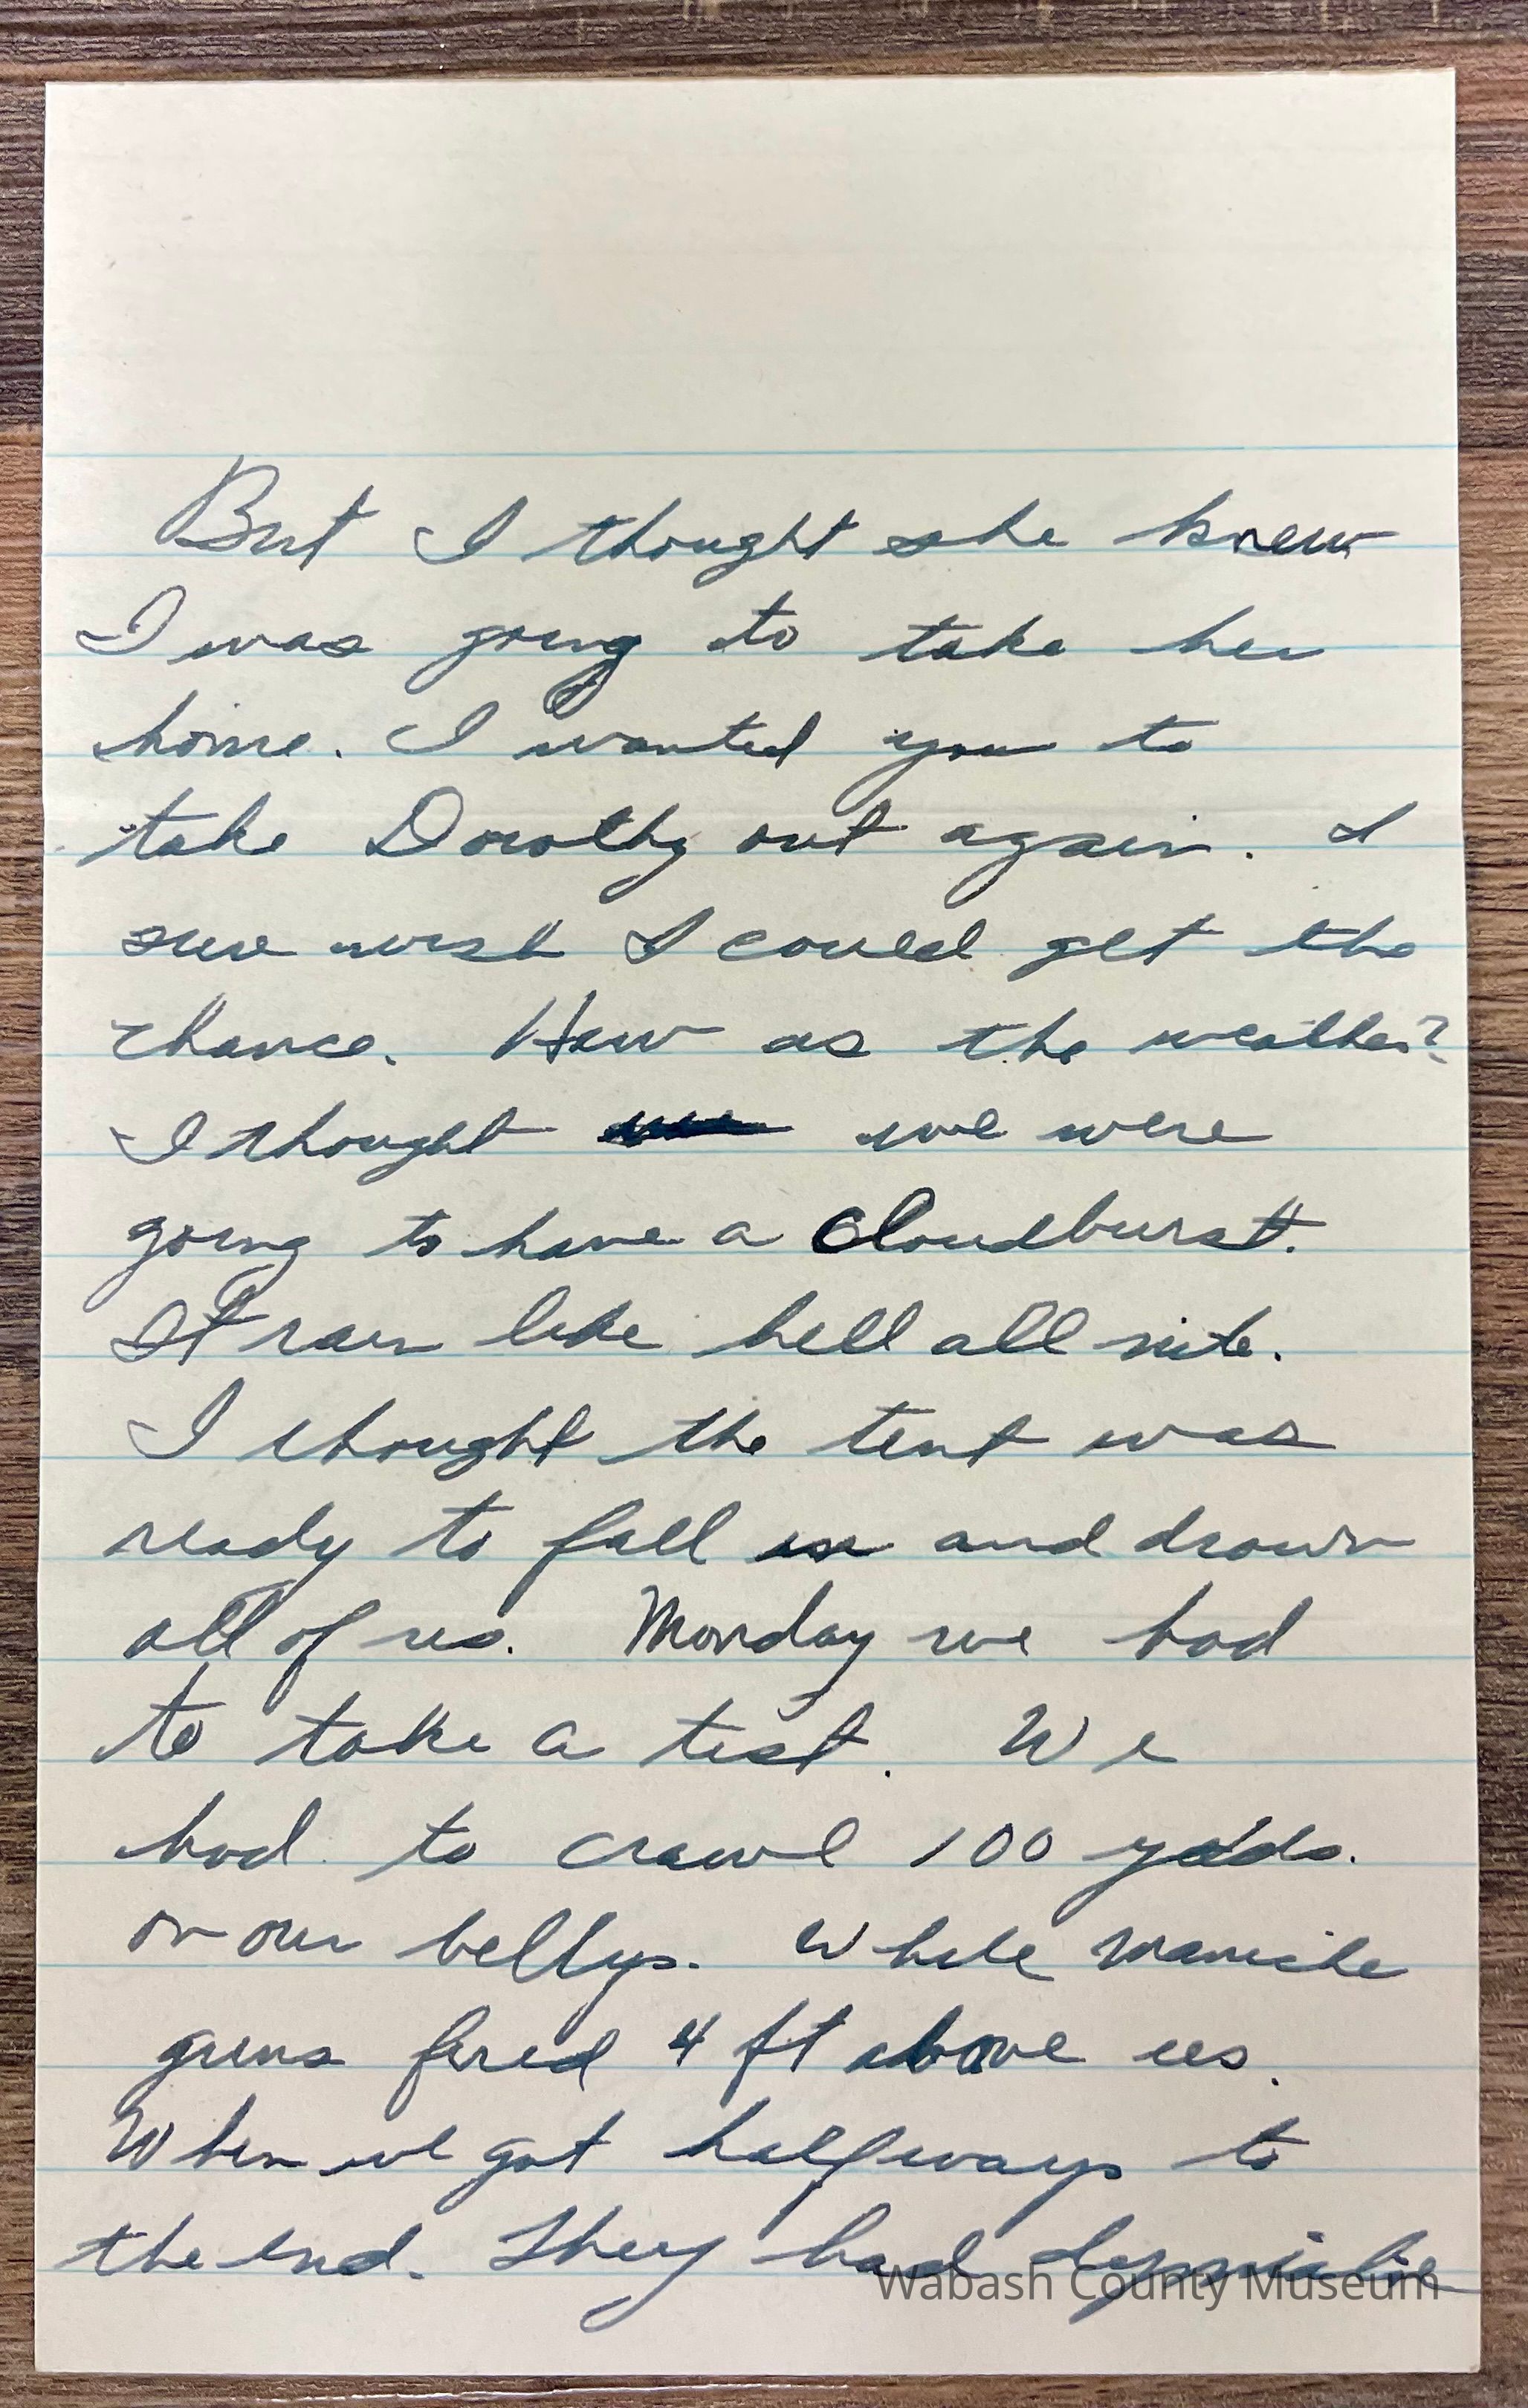 But I thought she knew
I was going to take her
home. I wanted you to
take Dorothy out again. I
sure wish I could get the
chance. How as the weather?
I thought we were
going to have a Cloudburst.
It rain like hell all nite.
I thought the tent was
ready to fall in and drown
all of us. Monday we had
to take a test. We
had to crawl 100 yds.
on our bellys. While
guns fired 4 ft above us.
When we got halfways to
the end. They had
Wabash County Museum